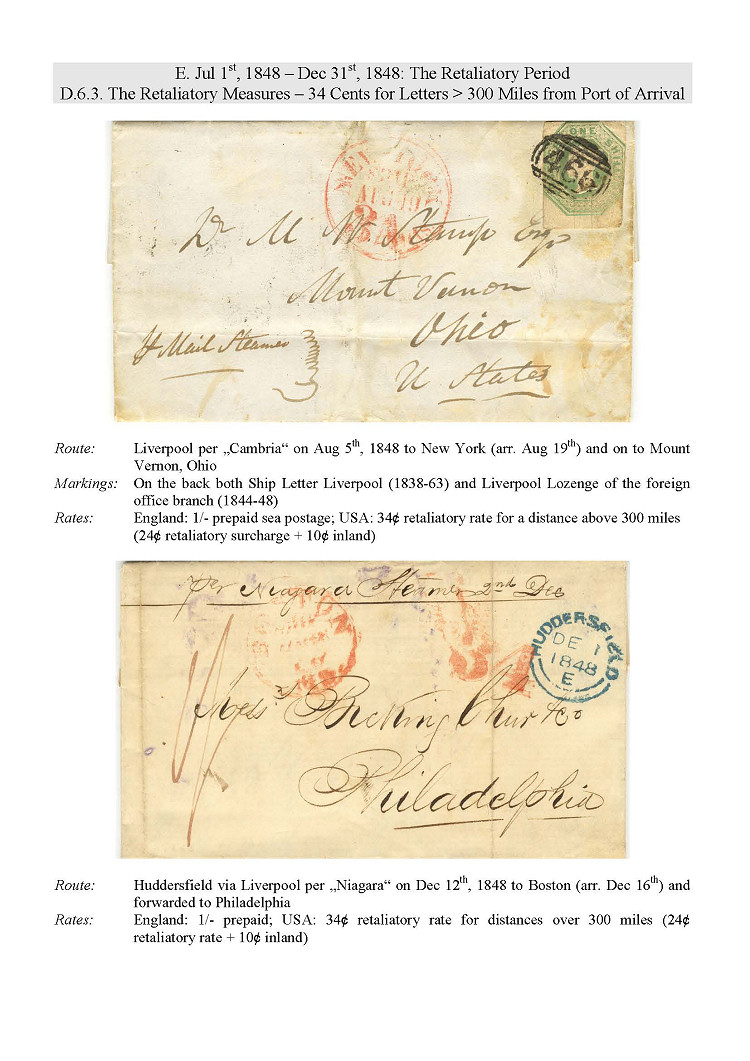 E. Jul 1st, 1848 – Dec 31st, 1848: The Retaliatory Period
D.6.3. The Retaliatory Measures – 34 Cents for Letters > 300 Miles from Port of Arrival
ONE SHILL
466
AUG 19
34
M W Stamp Esqr
Mount Vernon
Ohio
Mail Steamer
U States
Route: Liverpool per „Cambria“ on Aug 5th, 1848 to New York (arr. Aug 19th) and on to Mount
Vernon, Ohio
Markings: On the back both Ship Letter Liverpool (1838-63) and Liverpool Lozenge of the foreign
office branch (1844-48)
Rates: England: 1/- prepaid sea postage; USA: 34¢ retaliatory rate for a distance above 300 miles
(24¢ retaliatory surcharge + 10¢ inland)
per Niagara Steamer 2nd Dec
HUDDERSFIELD
DE 1
1848
E
Philadelphia
Route: Huddersfield via Liverpool per „Niagara“ on Dec 12th, 1848 to Boston (arr. Dec 16th) and
forwarded to Philadelphia
Rates: England: 1/- prepaid; USA: 34¢ retaliatory rate for distances over 300 miles (24¢
retaliatory rate + 10¢ inland)